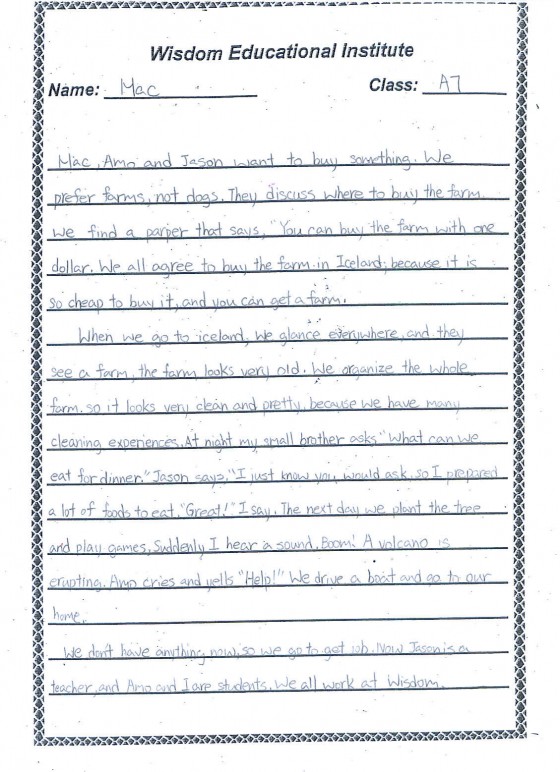 Wisdom Educational Institute
Name: Mac Class: A7
Mac, Amo and Jason want to buy something. We
prefer farms, not dogs. They discuss where to buy the farm.
We find a parper that says, "You can buy the farm with one
dollar. We all agree to buy the farm in Iceland, because it is
so cheap to buy it, and you can get a farm.
When we go to iceland, we glance everywhere, and they
see a farm, the farm looks very old. We organize the whole
farm. so it looks very clean and pretty, because we have many
cleaning experiences. At night my small brother asks "What can we
eat for dinner." Jason says. "I just know you would ask, so I prepared
a lot of foods to eat. "Great!" I say. The next day we plant the tree
and play games, Suddenly I hear a sound. Boom! A volcano is
erupting. Amo cries and yells "Help!" We drive a boat and go to our
home.
We don't have anything now, so we go to get job. Now Jason is a
teacher, and Amo and I are students. We all work at Wisdom.